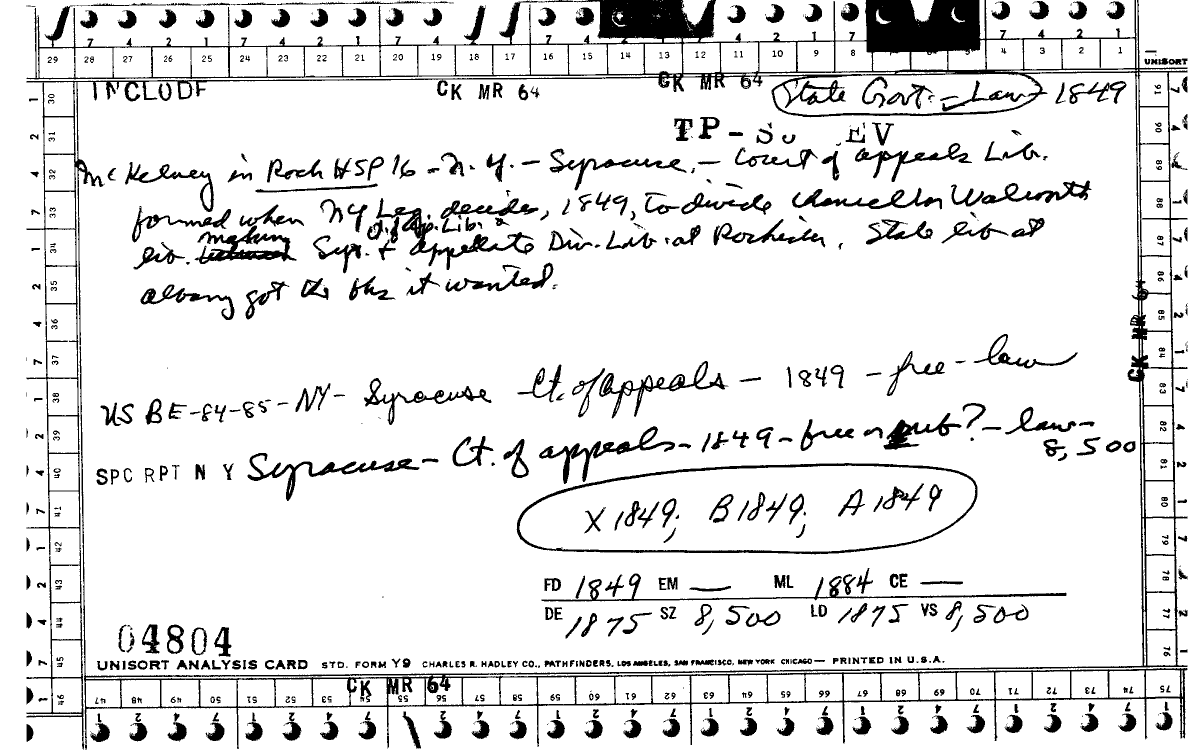 7 4 2 1 7 4 2 1 7 4 2 1 7 4 2 1 7 4 2 1
29 28 27 26 25 24 23 22 21 20 19 18 17 16 15 14 13 12 11 10 9 8 4 3 2 1
UNISORT
INCLUDE CK MR 64 CK MR 64 State Govt. - Law - 1849
TP - EV
McKelvey in Roch HSP 16 - N.Y. - Syracuse - Court of appeals Lib.
formed when NY Leg. decides, 1849, to divide chancellor Walworth
making Ct. of Ap. Lib. &
lib. Syr. & Appellate Div. Lib. at Rochester. State lib at
albany got the bks it wanted.
CK MR 64
US BE-84-85-NY- Syracuse Ct. of appeals - 1849 - free - law
SPC RPT N Y Syracuse - Ct. of appeals - 1849 - free or sub? - law -
8,500
X 1849; B 1849; A 1849
FD 1849 EM — ML 1884 CE —
DE 1875 SZ 8,500 LD 1875 VS 8,500
04804
UNISORT ANALYSIS CARD STD. FORM Y9 CHARLES R. HADLEY CO., PATHFINDERS, LOS ANGELES, SAN FRANCISCO, NEW YORK CHICAGO — PRINTED IN U.S.A.
CK MR 64
47 48 49 50 51 52 53 54 55 56 57 58 59 60 61 62 63 64 65 66 67 68 69 70 71 72 73 74 75